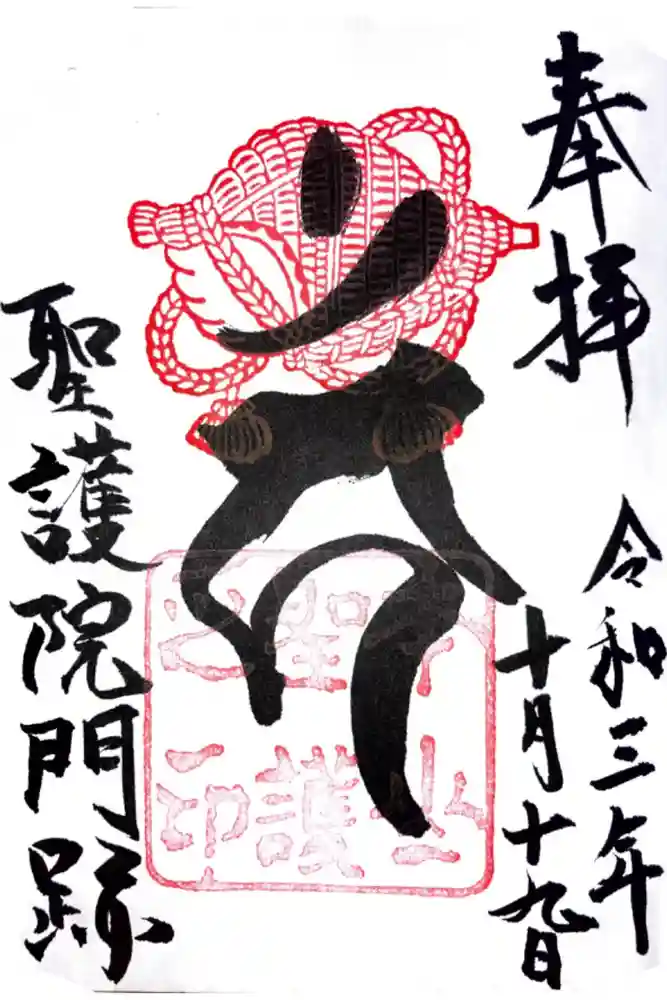 奉拝
令和三年
十月十九日
聖護院門跡